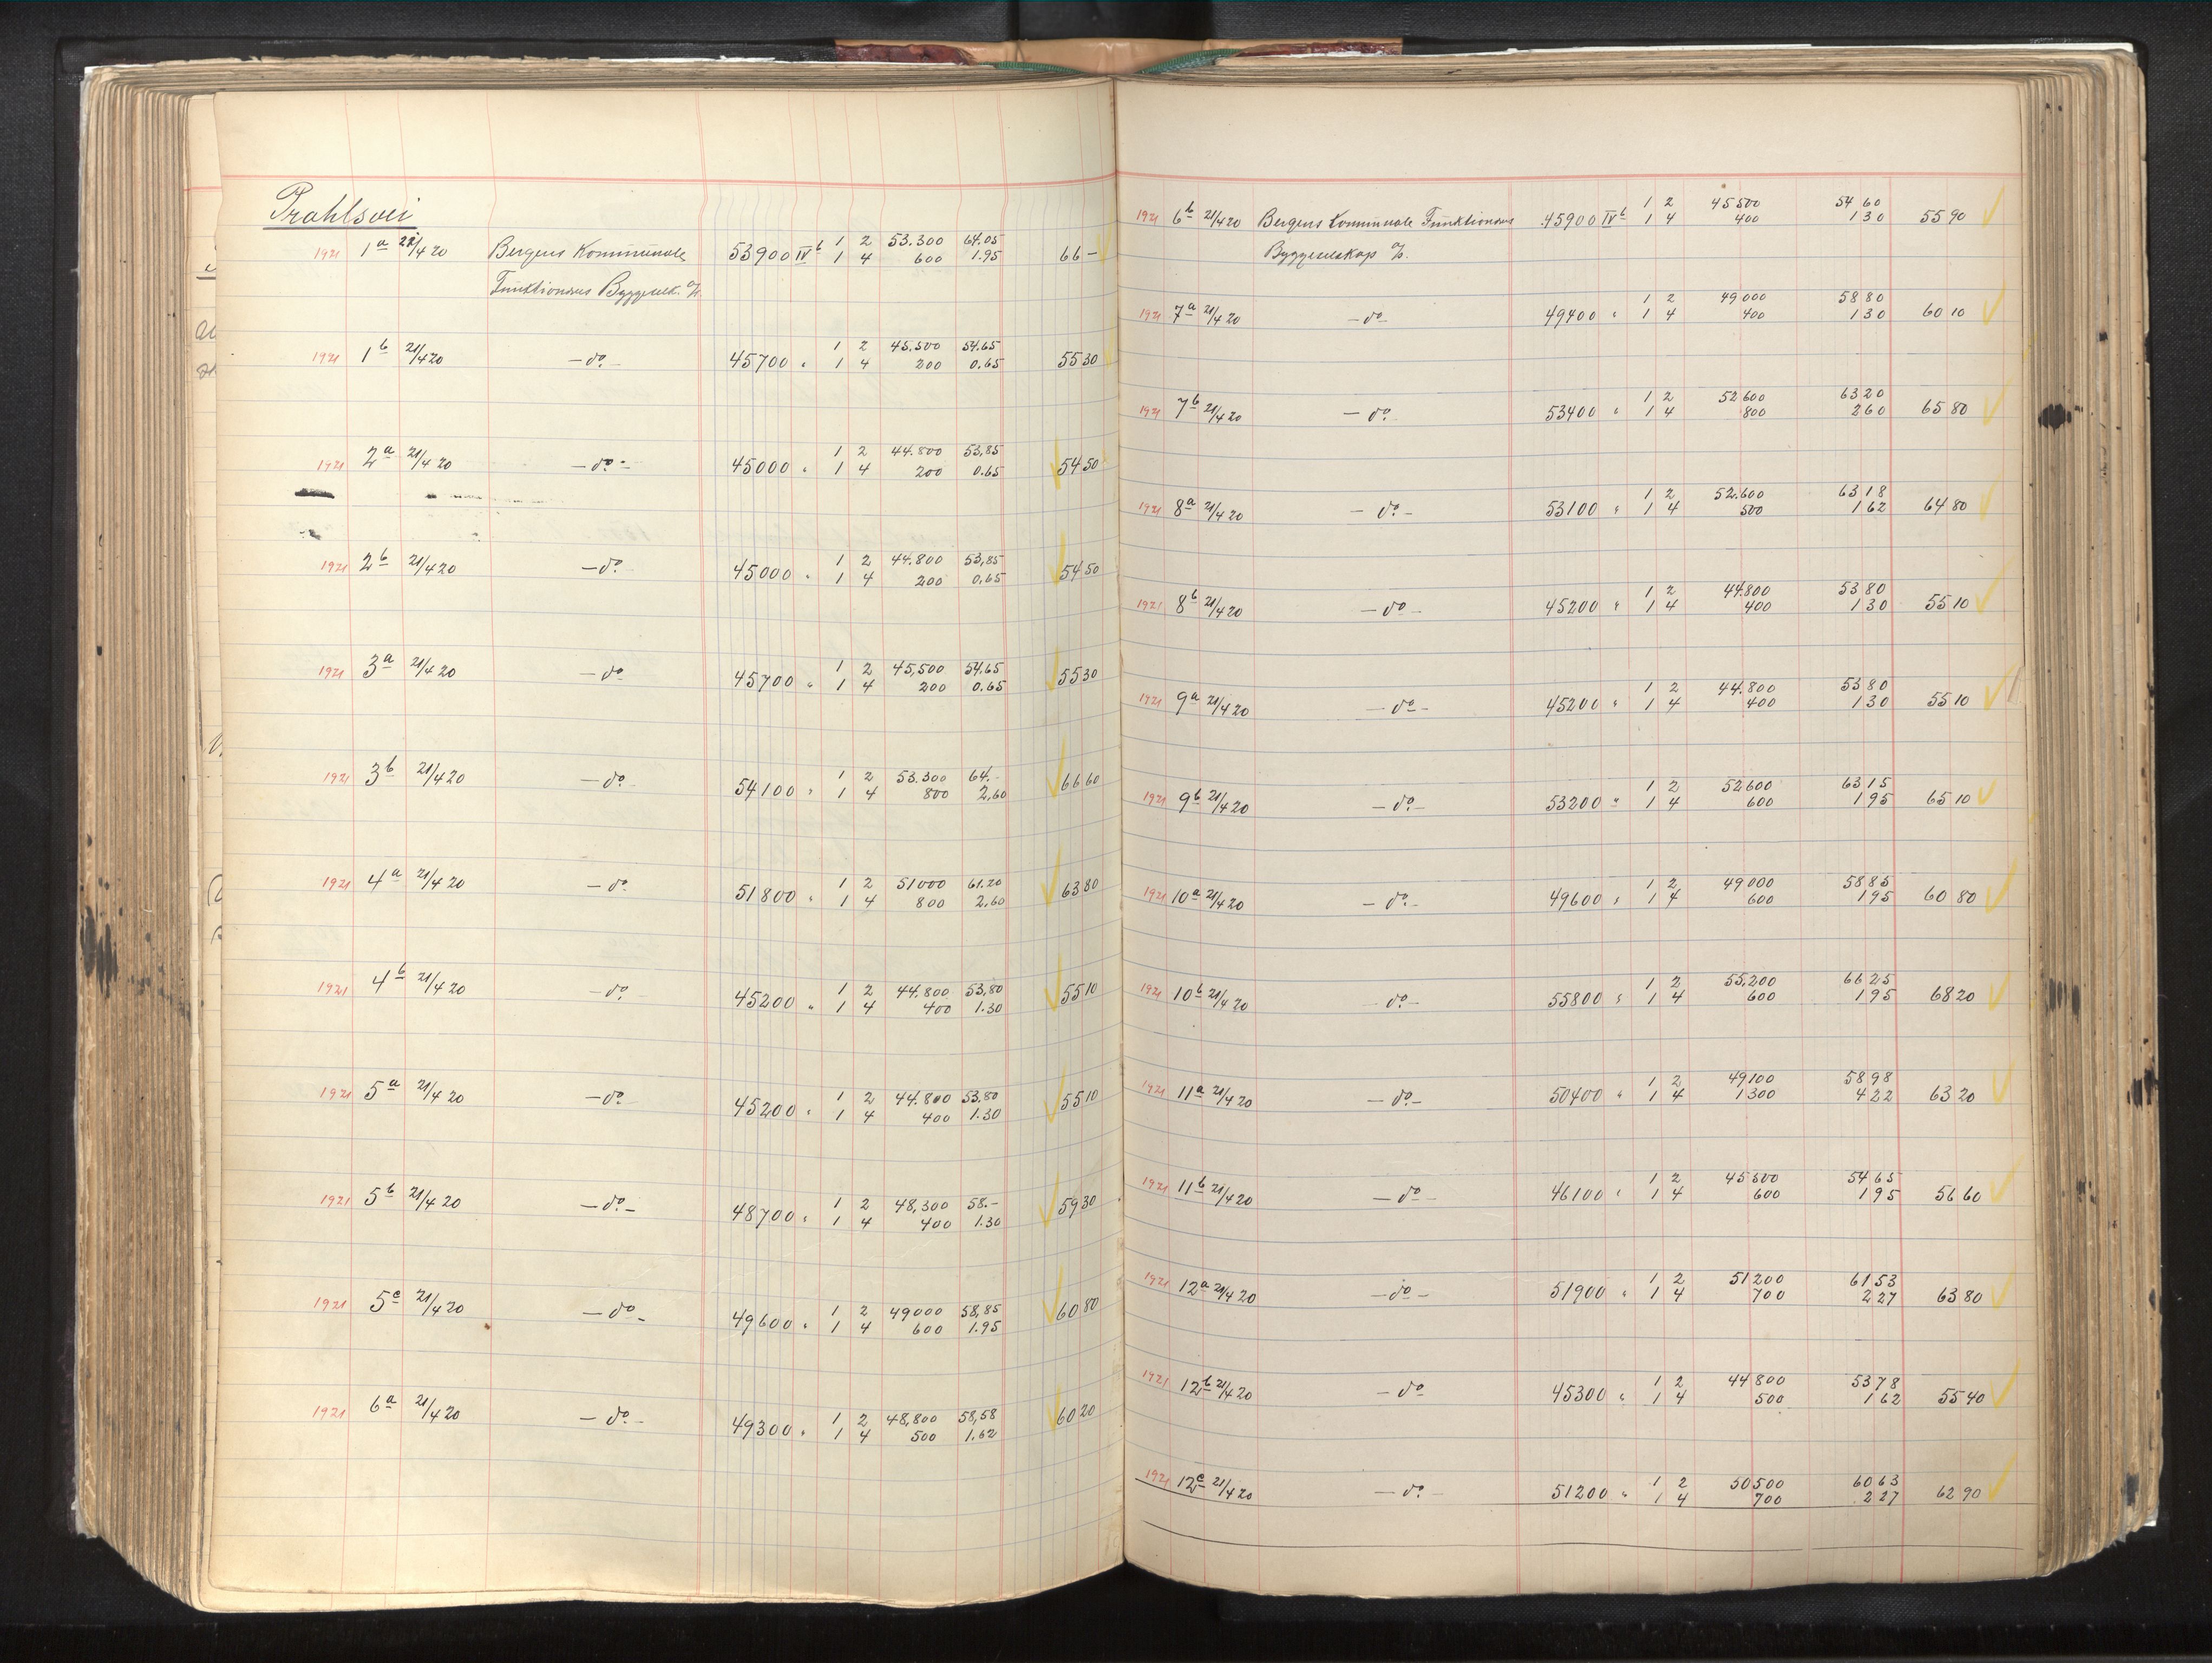 Prahlsvei
1921 1a 21/4 20 Bergens Kommunale 53900 IVb 1 2 53.300 64.05
1 4 600 1.95 66 –
Funktionærers Byggeselk. A/L
1921 1b 21/4 20 – do – 45700 " 1 2 45.500 54.65
1 4 200 0.65 55 30
1921 2a 21/4 20 – do – 45000 " 1 2 44.800 53,85
1 4 200 0.65 54 50
1921 2b 21/4 20 – do – 45000 " 1 2 44.800 53,85
1 4 200 0,65 54 50
1921 3a 21/4 20 – do – 45700 " 1 2 45,500 54.65
1 4 200 0.65 55 30
1921 3b 21/4 20 – do – 54100 " 1 2 53.300 64.-
1 4 800 2,60 66 60
1921 4a 21/4 20 – do – 51800 " 1 2 51000 61.20
1 4 800 2,60 63 80
1921 4b 21/4 20 – do – 45200 " 1 2 44.800 53,80
1 4 400 1.30 55 10
1921 5a 21/4 20 – do – 45200 " 1 2 44.800 53,80
1 4 400 1.30 55 10
1921 5b 21/4 20 – do – 48700 " 1 2 48,300 58.-
1 4 400 1.30 59 30
1921 5c 21/4 20 – do – 49600 " 1 2 49000 58,85
1 4 600 1.95 60 80
1921 6a 21/4 20 – do – 49300 " 1 2 48,800 58,58
1 4 500 1.62 60 20
1921 6b 21/4 20 Bergens Kommunale Funktionærers 45900 IVb 1 2 45500 54 60
1 4 400 1 30 55 90
Byggeselskap A/L.
1921 7a 21/4 20 – do – 49400 " 1 2 49000 58 80
1 4 400 1 30 60 10
1921 7b 21/4 20 – do – 53400 " 1 2 52600 63 20
1 4 800 2 60 65 80
1921 8a 21/4 20 – do – 53100 " 1 2 52.600 63 18
1 4 500 1 62 64 80
1921 8b 21/4 20 – do – 45200 " 1 2 44.800 53 80
1 4 400 1 30 55 10
1921 9a 21/4 20 – do – 45200 " 1 2 44.800 53 80
1 4 400 1 30 55 10
1921 9b 21/4 20 – do – 53200 " 1 2 52600 63 15
1 4 600 1 95 65 10
1921 10a 21/4 20 – do – 49600 " 1 2 49000 58 85
1 4 600 1 95 60 80
1921 10b 21/4 20 – do – 55800 " 1 2 55,200 66 25
1 4 600 1 95 68 20
1921 11a 21/4 20 – do – 50400 " 1 2 49100 58 98
1 4 1300 4 22 63 20
1921 11b 21/4 20 – do – 46100 " 1 2 45500 54 65
1 4 600 1 95 56 60
1921 12a 21/4 20 – do – 51900 " 1 2 51200 61 53
1 4 700 2 27 63 80
1921 12b 21/4 20 – do – 45300 " 1 2 44800 53 78
1 4 500 1 62 55 40
1921 12c 21/4 20 – do – 51200 " 1 2 50500 60 63
1 4 700 2 27 62 90